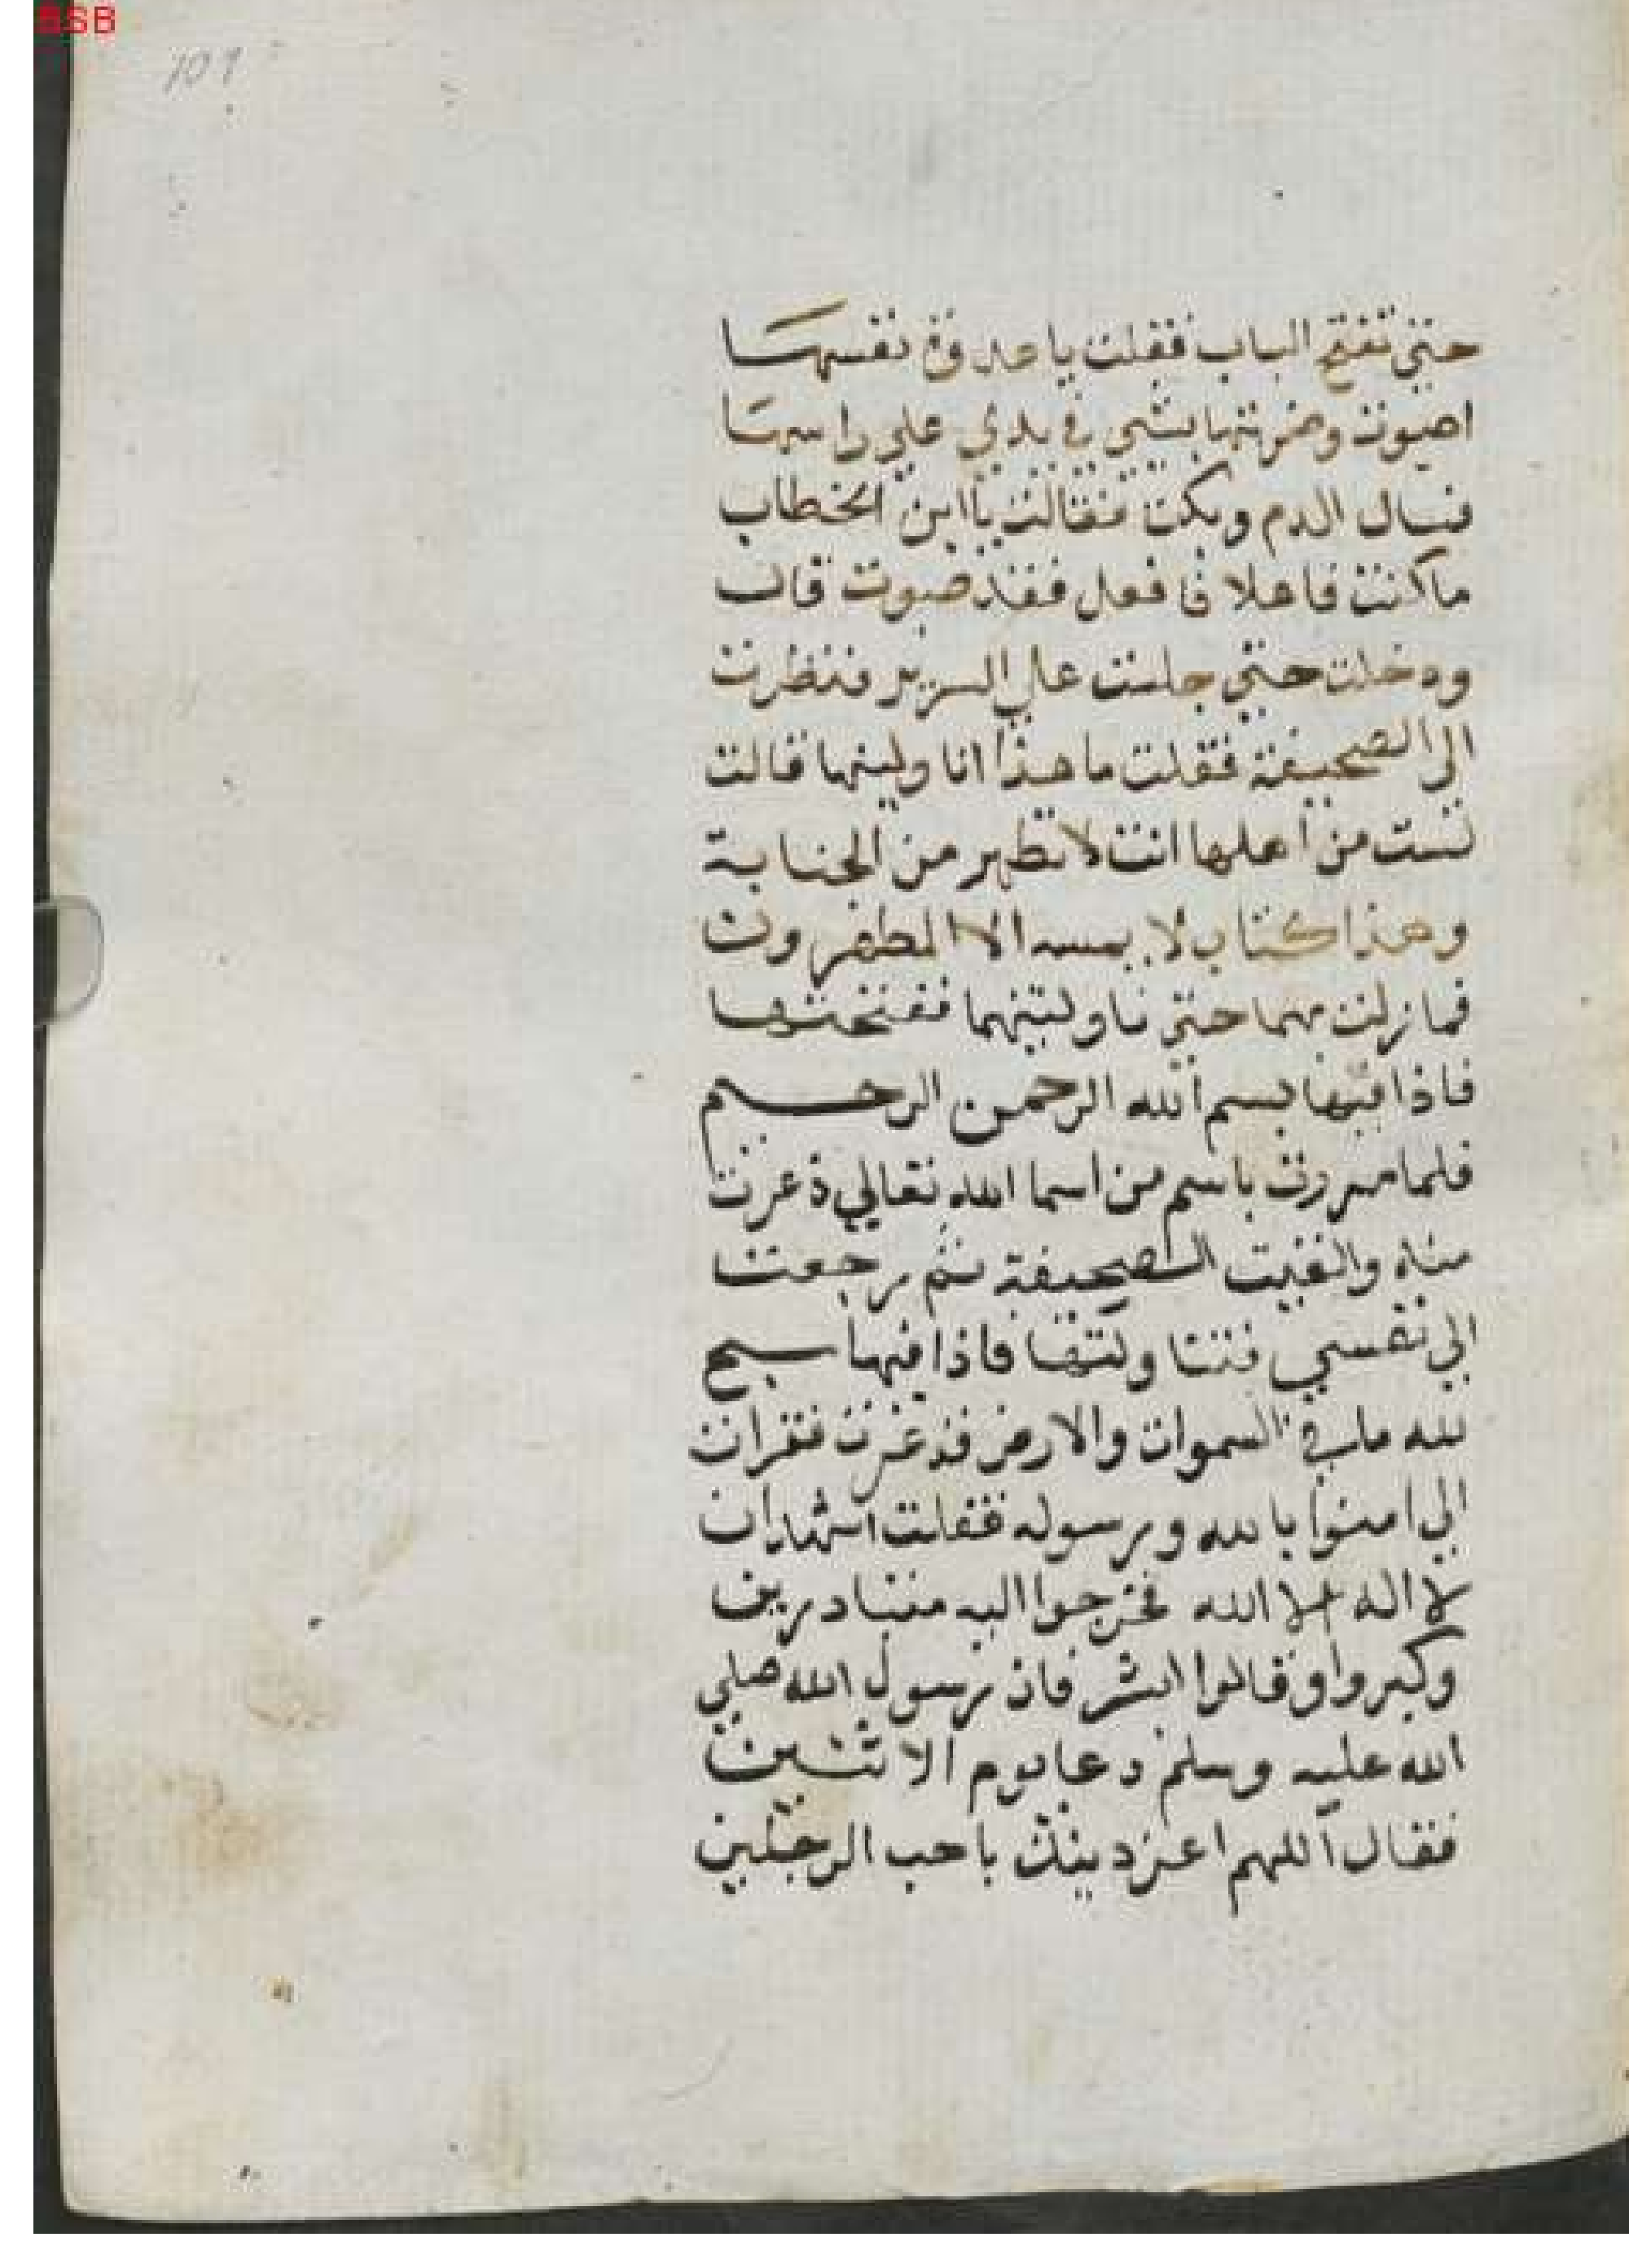 BSB
101
حتى تفتح الباب فقلت يا عدوة نفسها
اصبوت وضربتها بشي في يدي علي راسها
فسال الدم وبكت فقالت يا ابن الخطاب
ما كنت فاعلا فافعل فقد صبوت قال
ودخلت حتي جلست علي السرير فنظرت
الي الصحيفة فقلت ما هذا انا وليتها قالت
لست من اهلها انت لا تطهر من الجنابة
وهذا كتاب لا يمسه الا المطهرون
فما زلت بها حتي ناولتيها ففتحتها
فاذا فيها بسم الله الرحمن الرحيم
فلما مررت باسم من اسما الله تعالي ذعرت
مناه والقيت الصحيفة ثم رجعت
الي نفسي فتناولتها فاذا فيها سبح
لله ما في السموات والارض فذعرت فقرات
الي امنوا بالله ورسوله فقلت اشهد ان
لا اله الا الله فخرجوا اليه متبادرين
وكبروا وقالوا ابشر فان رسول الله صلي
الله عليه وسلم دعا يوم الاثنين
فقال اللهم اعز دينك باحب الرجلين